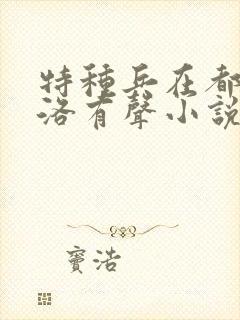 特種兵在都
洛有聲小說
寶浩